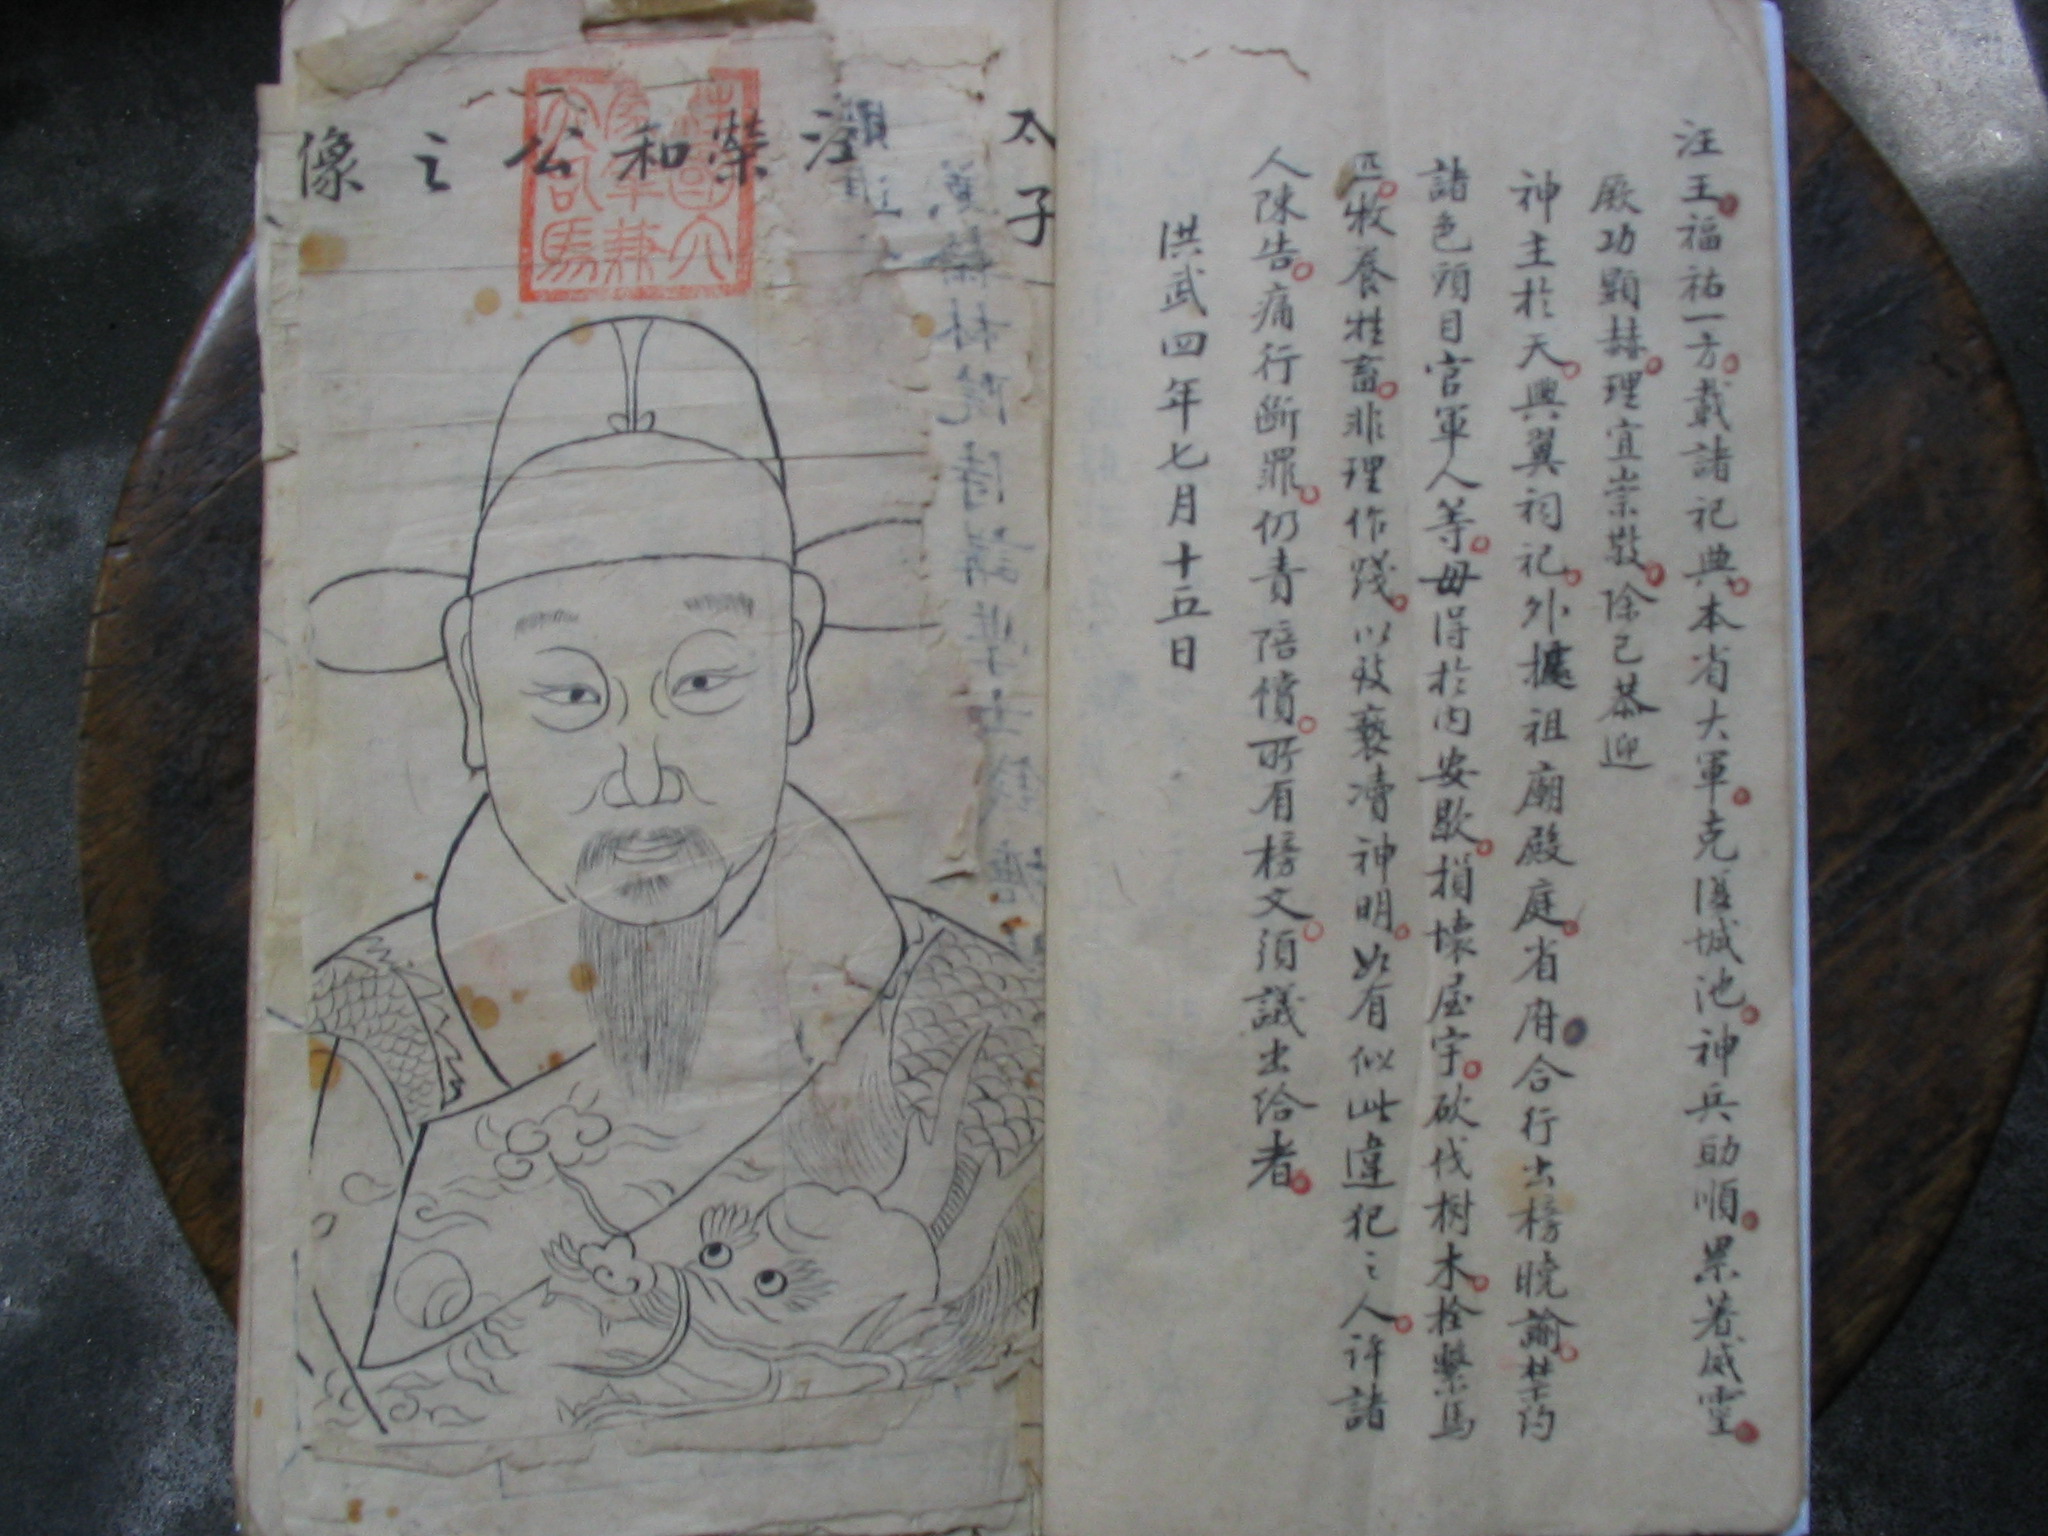 汪王福祐一方載諸祀典本省大軍克復城池神兵助順累著威靈
厥功顯赫理宜崇敬除已恭迎
神主於天興翼祠祀外據祖廟殿庭省府合行出榜曉諭禁約
諸色頭目官軍人等毋得於內安歇損壞屋宇砍伐樹木拴繫馬
匹牧養牲畜非理作踐以致褻瀆神明如有似此違犯之人許諸
人陳告痛行斷罪仍責陪償所有榜文須議出給者
洪武四年七月十五日
太子
汪榮和公之像